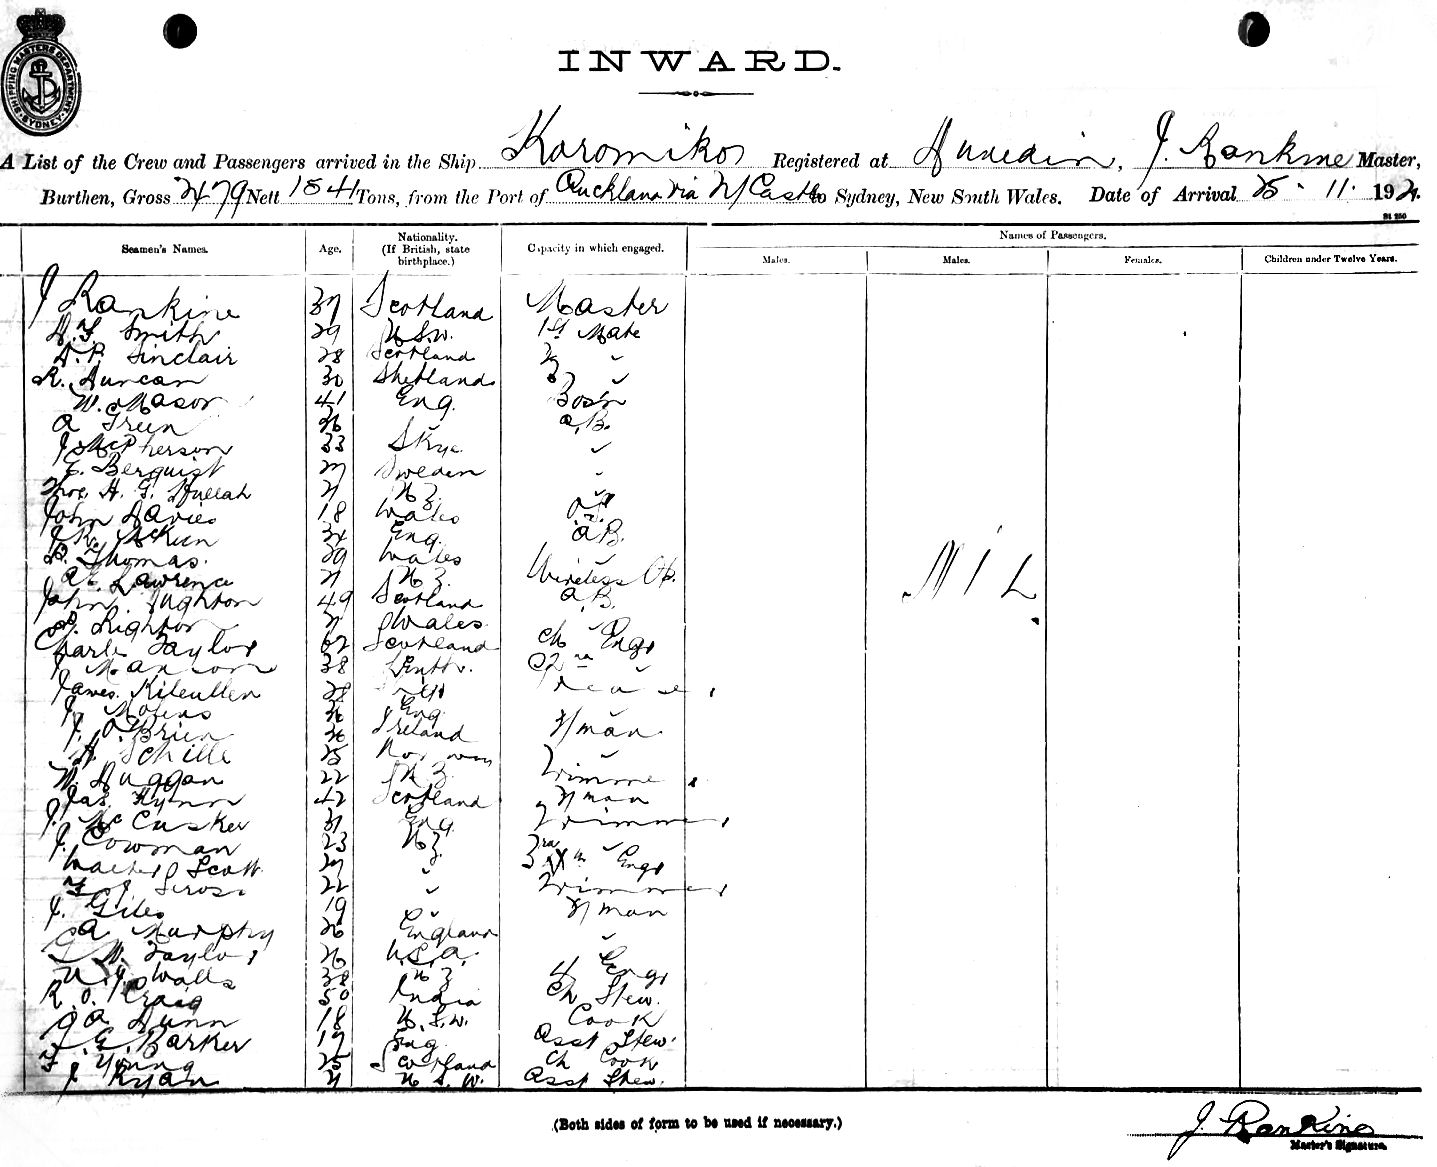 SHIPPING MASTERS DEPARTMENT SYDNEY
INWARD.
A List of the Crew and Passengers arrived in the Ship Koromiko Registered at Dunedin, J. Rankine Master,
Burthen, Gross 2479 Nett 1541 Tons, from the Port of Auckland via N/Castle to Sydney, New South Wales. Date of Arrival 25. 11. 192
Names of Passengers.
Seamen's Names. Age. Nationality. (If British, state birthplace.) Capacity in which engaged. Males. Males. Females. Children under Twelve Years.
J Rankine 37 Scotland Master
Smith 29 N.S.W. 1st Mate
D. P. Sinclair 28 Scotland 2 "
R. Duncan 30 Shetlands 3 "
W. Mason 41 Eng. Bosn
A Green 26 " A.B.
J McPherson 33 Skye "
E. Berquist 27 Sweden "
Thos. H. G. Hullah 21 N Z. "
John Davies 18 Wales O.S.
J. R. 34 Eng. A.B.
D. Thomas. 29 Wales "
Lawrence 21 N Z. Wireless Op.
John 49 Scotland A.B.
21 Wales "
Charles Taylor 62 Scotland Ch Engr
J Manson 38 2nd "
James Kilcullen 28
J. 36 Eng. "
J. O'Brien 26 Ireland F/man
Schille 25 Norway "
W. Duggan 22 N Z. Trimmer
Jas. Flynn 42 Scotland F/man
J. McCusker 31 Eng. Trimmer
J. Cowman 23 N Z. 3rd "
Walter J Scott 27 " Engr
22 " Trimmer
J. Giles 19 " F/man
A Murphy 26 England "
W. Taylor 26 U.S.A. "
Walls 38 N Z 4 Engr
R. O. Craig 50 India Ch Stew.
A Dunn 18 N.S.W. Cook
E. Barker 17 Eng. Asst Stew.
F. Young 25 Scotland Ch Cook
J Ryan 21 N S. W. Asst Stew.
NIL
(Both sides of form to be used if necessary.)
J. Rankine
Master's Signature.